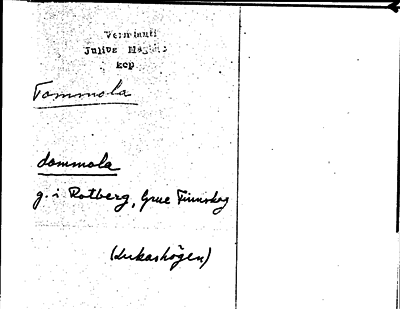 Vermlandi
Julius Mägiste
kop
Tommola
dommola
g. i Rotberg, Grue Finnskog
(Lukashögen)